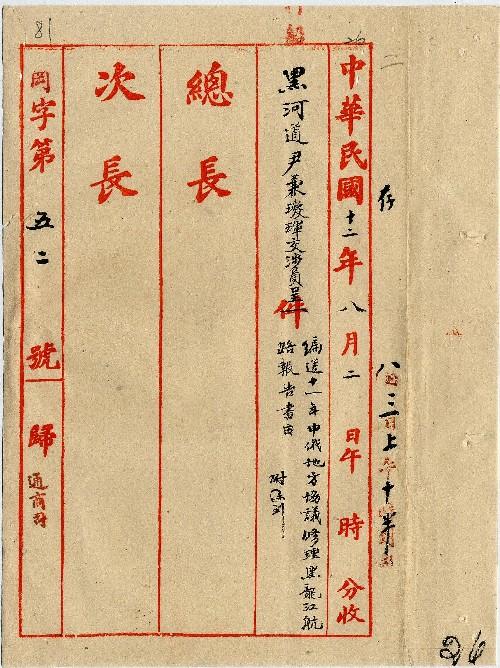 存
八月三日上午十半
中華民國十二年八月二日午時分收
黑河道尹兼璦琿交涉員呈一件
編送十一年中俄地方協議修理黑龍江航
路報告書由
總長
次長
岡字第五二號歸通商司
81
26